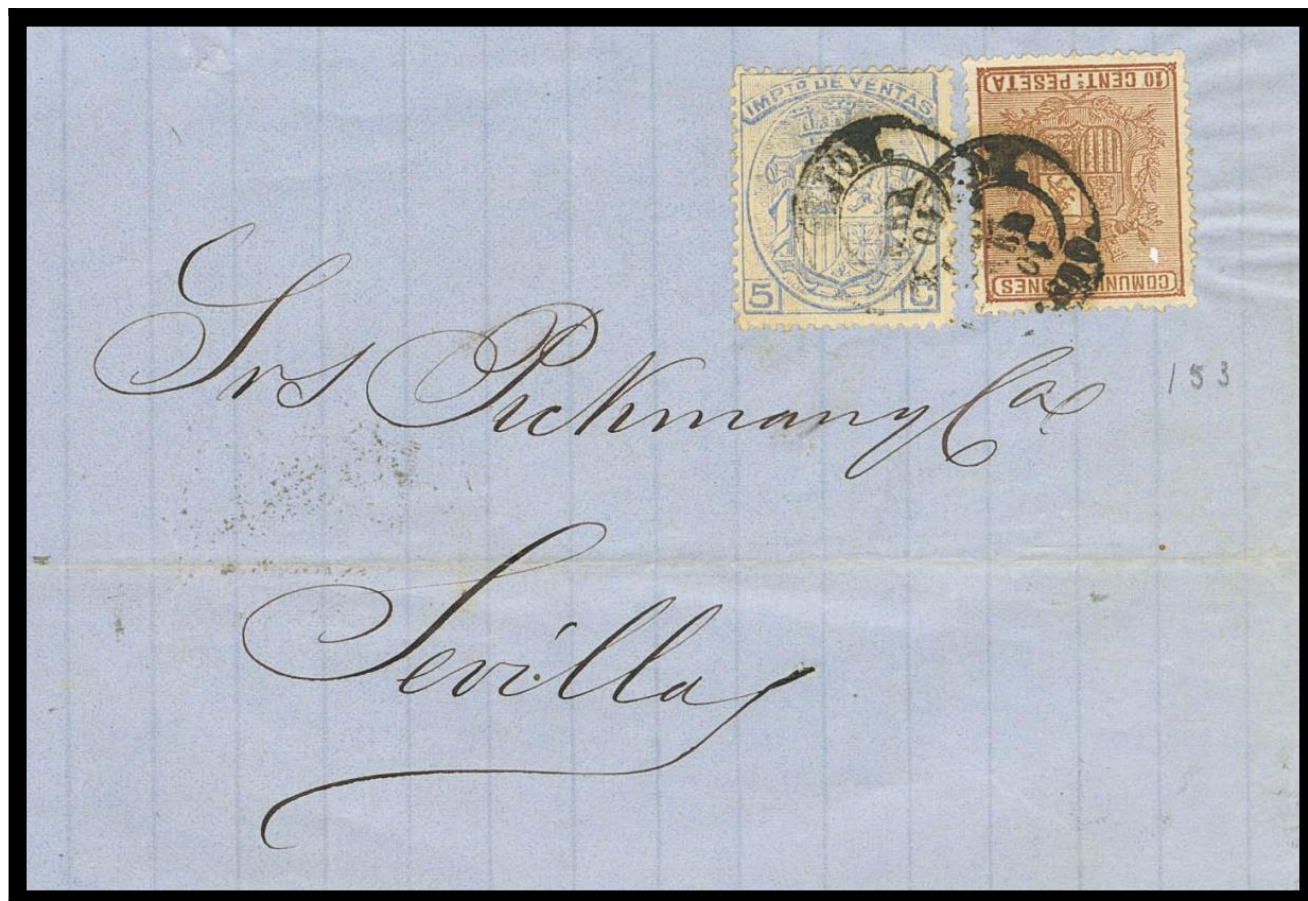 IMPTO DE VENTAS
5 C
10 CENTS PESETA
COMUNICACIONES
153
Srs Pickman y Ca
Sevilla